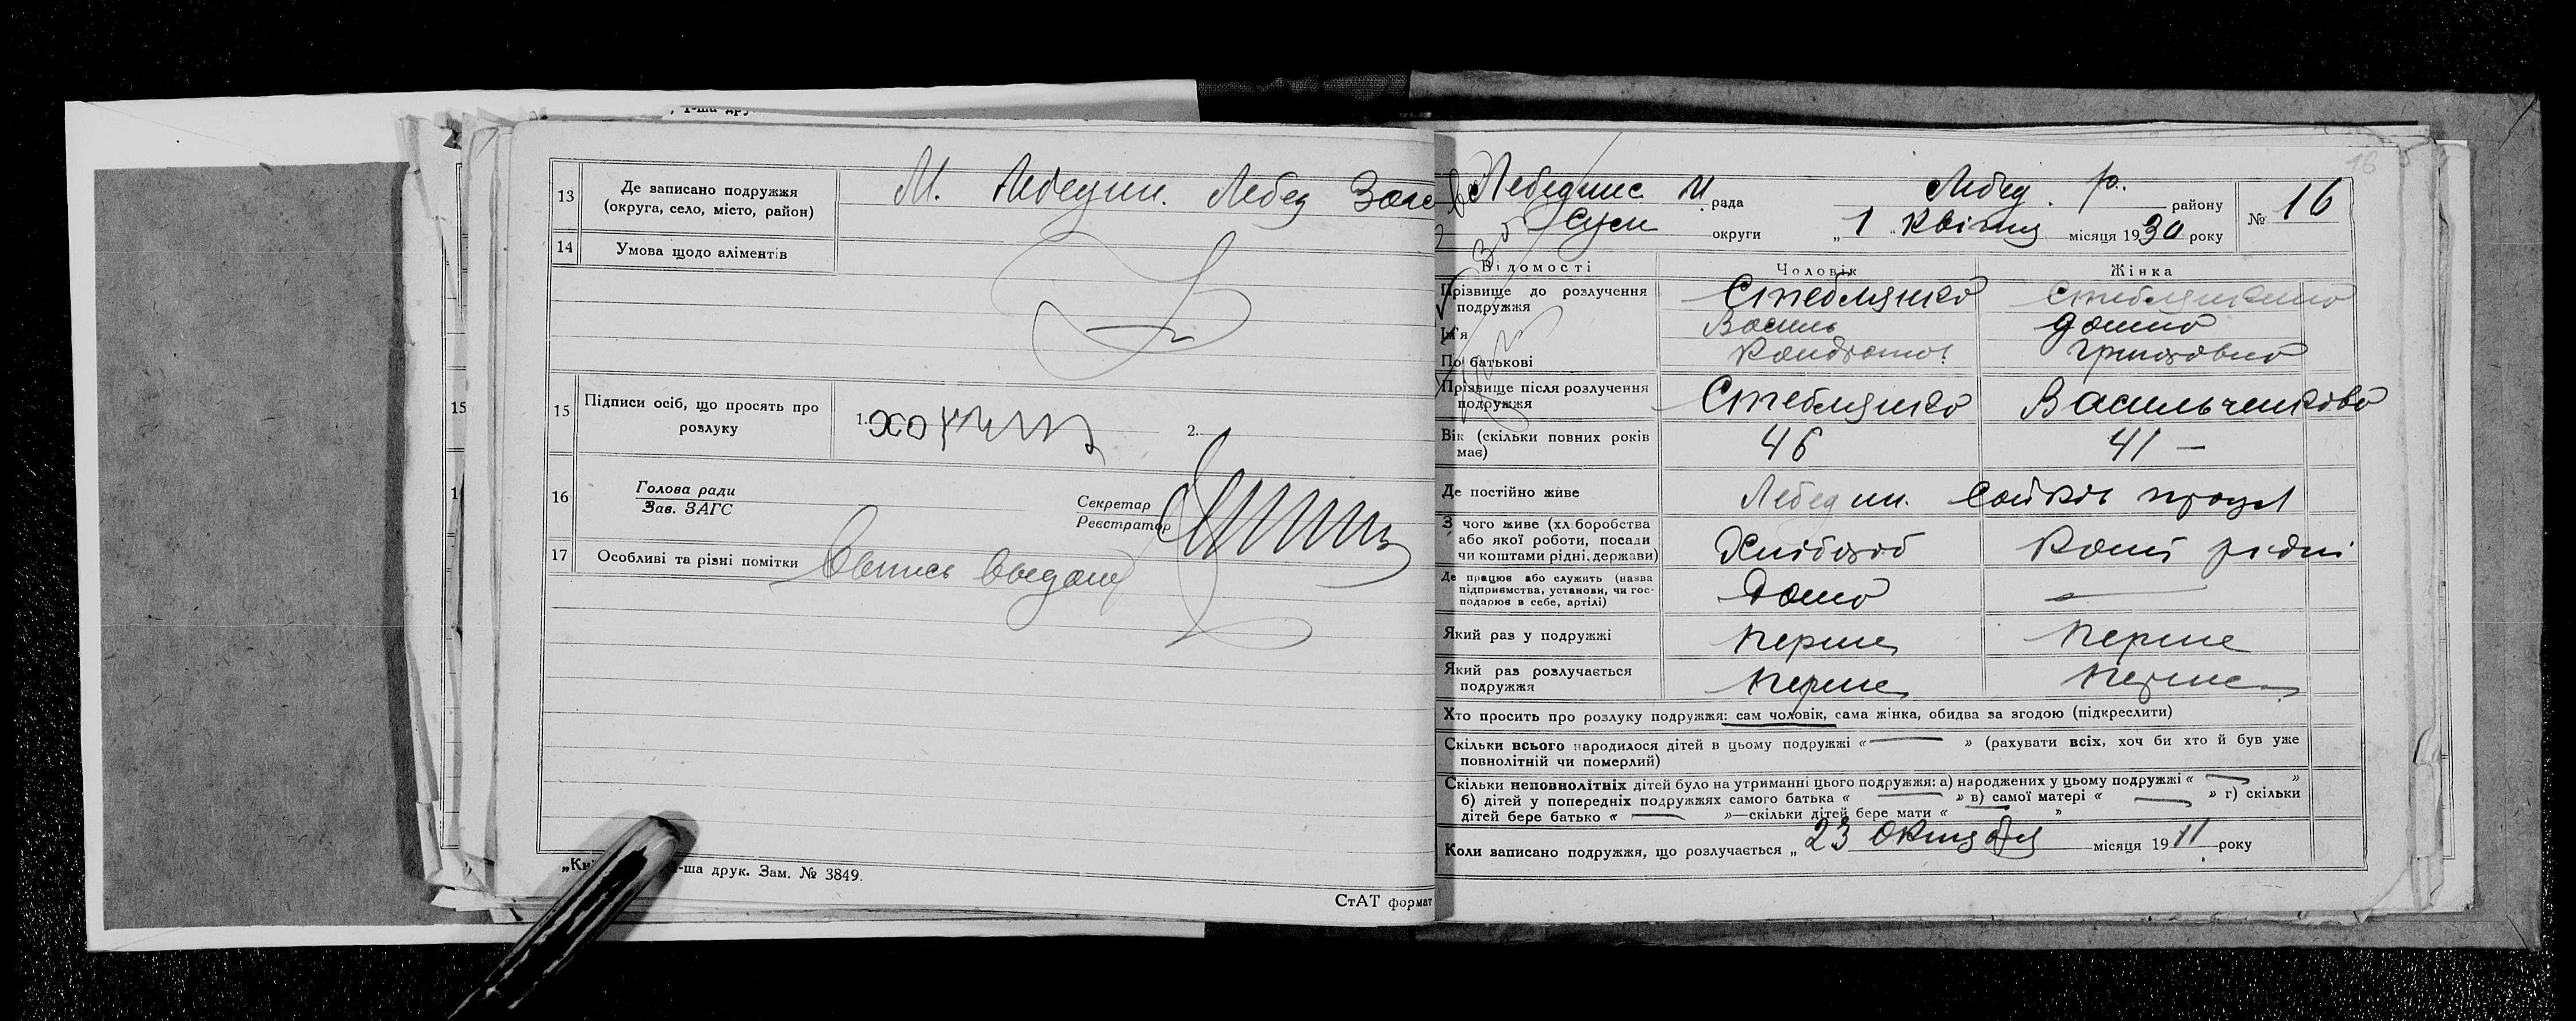 , 1-ша дру
13 Де записано подружжя (округа, село, місто, район) М. Лебедин. Лебед
14 Умова щодо аліментів
15 Підписи осіб, що просять про розлуку 1. 2.
16 Голова ради
Зав. ЗАГС
Секретар
Реєстратор
17 Особливі та різні помітки
-ша друк. Зам. № 3849.
СтАТ формат
15
16
Лебединс М. рада Лебед. р. району № 16
Суми округи „ 1 " Квітня місяця 1930 року
Відомості Чоловік Жінка
Прізвище до розлучення подружжя Стеблянко Стеблянкина
Ім'я Василь Домна
По батькові Кондратов. Григоровна
Прізвище після розлучення подружжя Стеблянко Васильченкова
Вік (скільки повних років має) 46 41 —
Де постійно живе Лебедин.
З чого живе (хліборобства або якої роботи, посади чи коштами рідні, держави) Хлібороб Кошт рідні
Де працює або служить (назва підприємства, установи, чи господарює в себе, артілі) Дома —
Який раз у подружжі перше перше
Який раз розлучається подружжя перше перше
Хто просить про розлуку подружжя: сам чоловік, сама жінка, обидва за згодою (підкреслити)
Скільки всього народилося дітей в цьому подружжі « — » (рахувати всіх, хоч би хто й був уже
повнолітній чи померлий)
Скільки неповнолітніх дітей було на утриманні цього подружжя: а) народжених у цьому подружжі « — »
б) дітей у попередніх подружжях самого батька « — » в) самої матері « — » г) скільки
дітей бере батько « — »—скільки дітей бере мати « — »
Коли записано подружжя, що розлучається „ 23 Октября місяця 1911 року